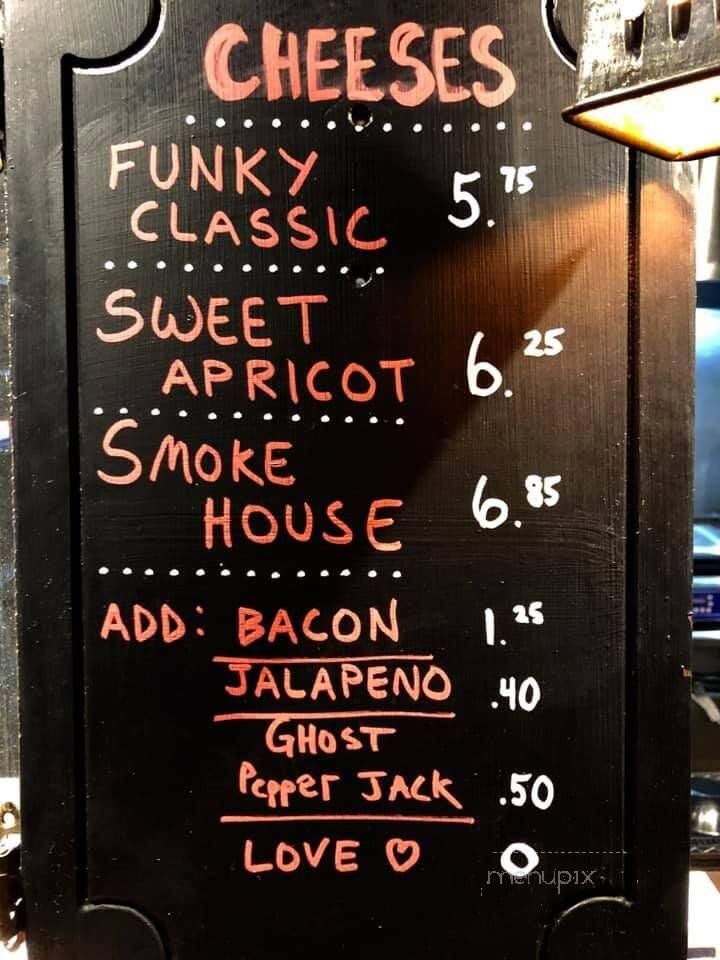 CHEESES
FUNKY
CLASSIC 5.75
SWEET
APRICOT 6.25
SMOKE
HOUSE 6.85
ADD: BACON 1.25
JALAPENO .40
GHOST
PEPPER JACK .50
LOVE ♡ 0
menupix